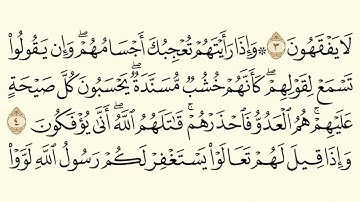 لَا يَفْقَهُونَ ٣ ۞ وَإِذَا رَأَيْتَهُمْ تُعْجِبُكَ أَجْسَامُهُمْ ۖ وَإِن يَقُولُوا۟
تَسْمَعْ لِقَوْلِهِمْ ۖ كَأَنَّهُمْ خُشُبٌ مُّسَنَّدَةٌ ۖ يَحْسَبُونَ كُلَّ صَيْحَةٍ
عَلَيْهِمْ ۚ هُمُ ٱلْعَدُوُّ فَٱحْذَرْهُمْ ۚ قَٰتَلَهُمُ ٱللَّهُ ۖ أَنَّىٰ يُؤْفَكُونَ ٤
وَإِذَا قِيلَ لَهُمْ تَعَالَوْا۟ يَسْتَغْفِرْ لَكُمْ رَسُولُ ٱللَّهِ لَوَّوْا۟